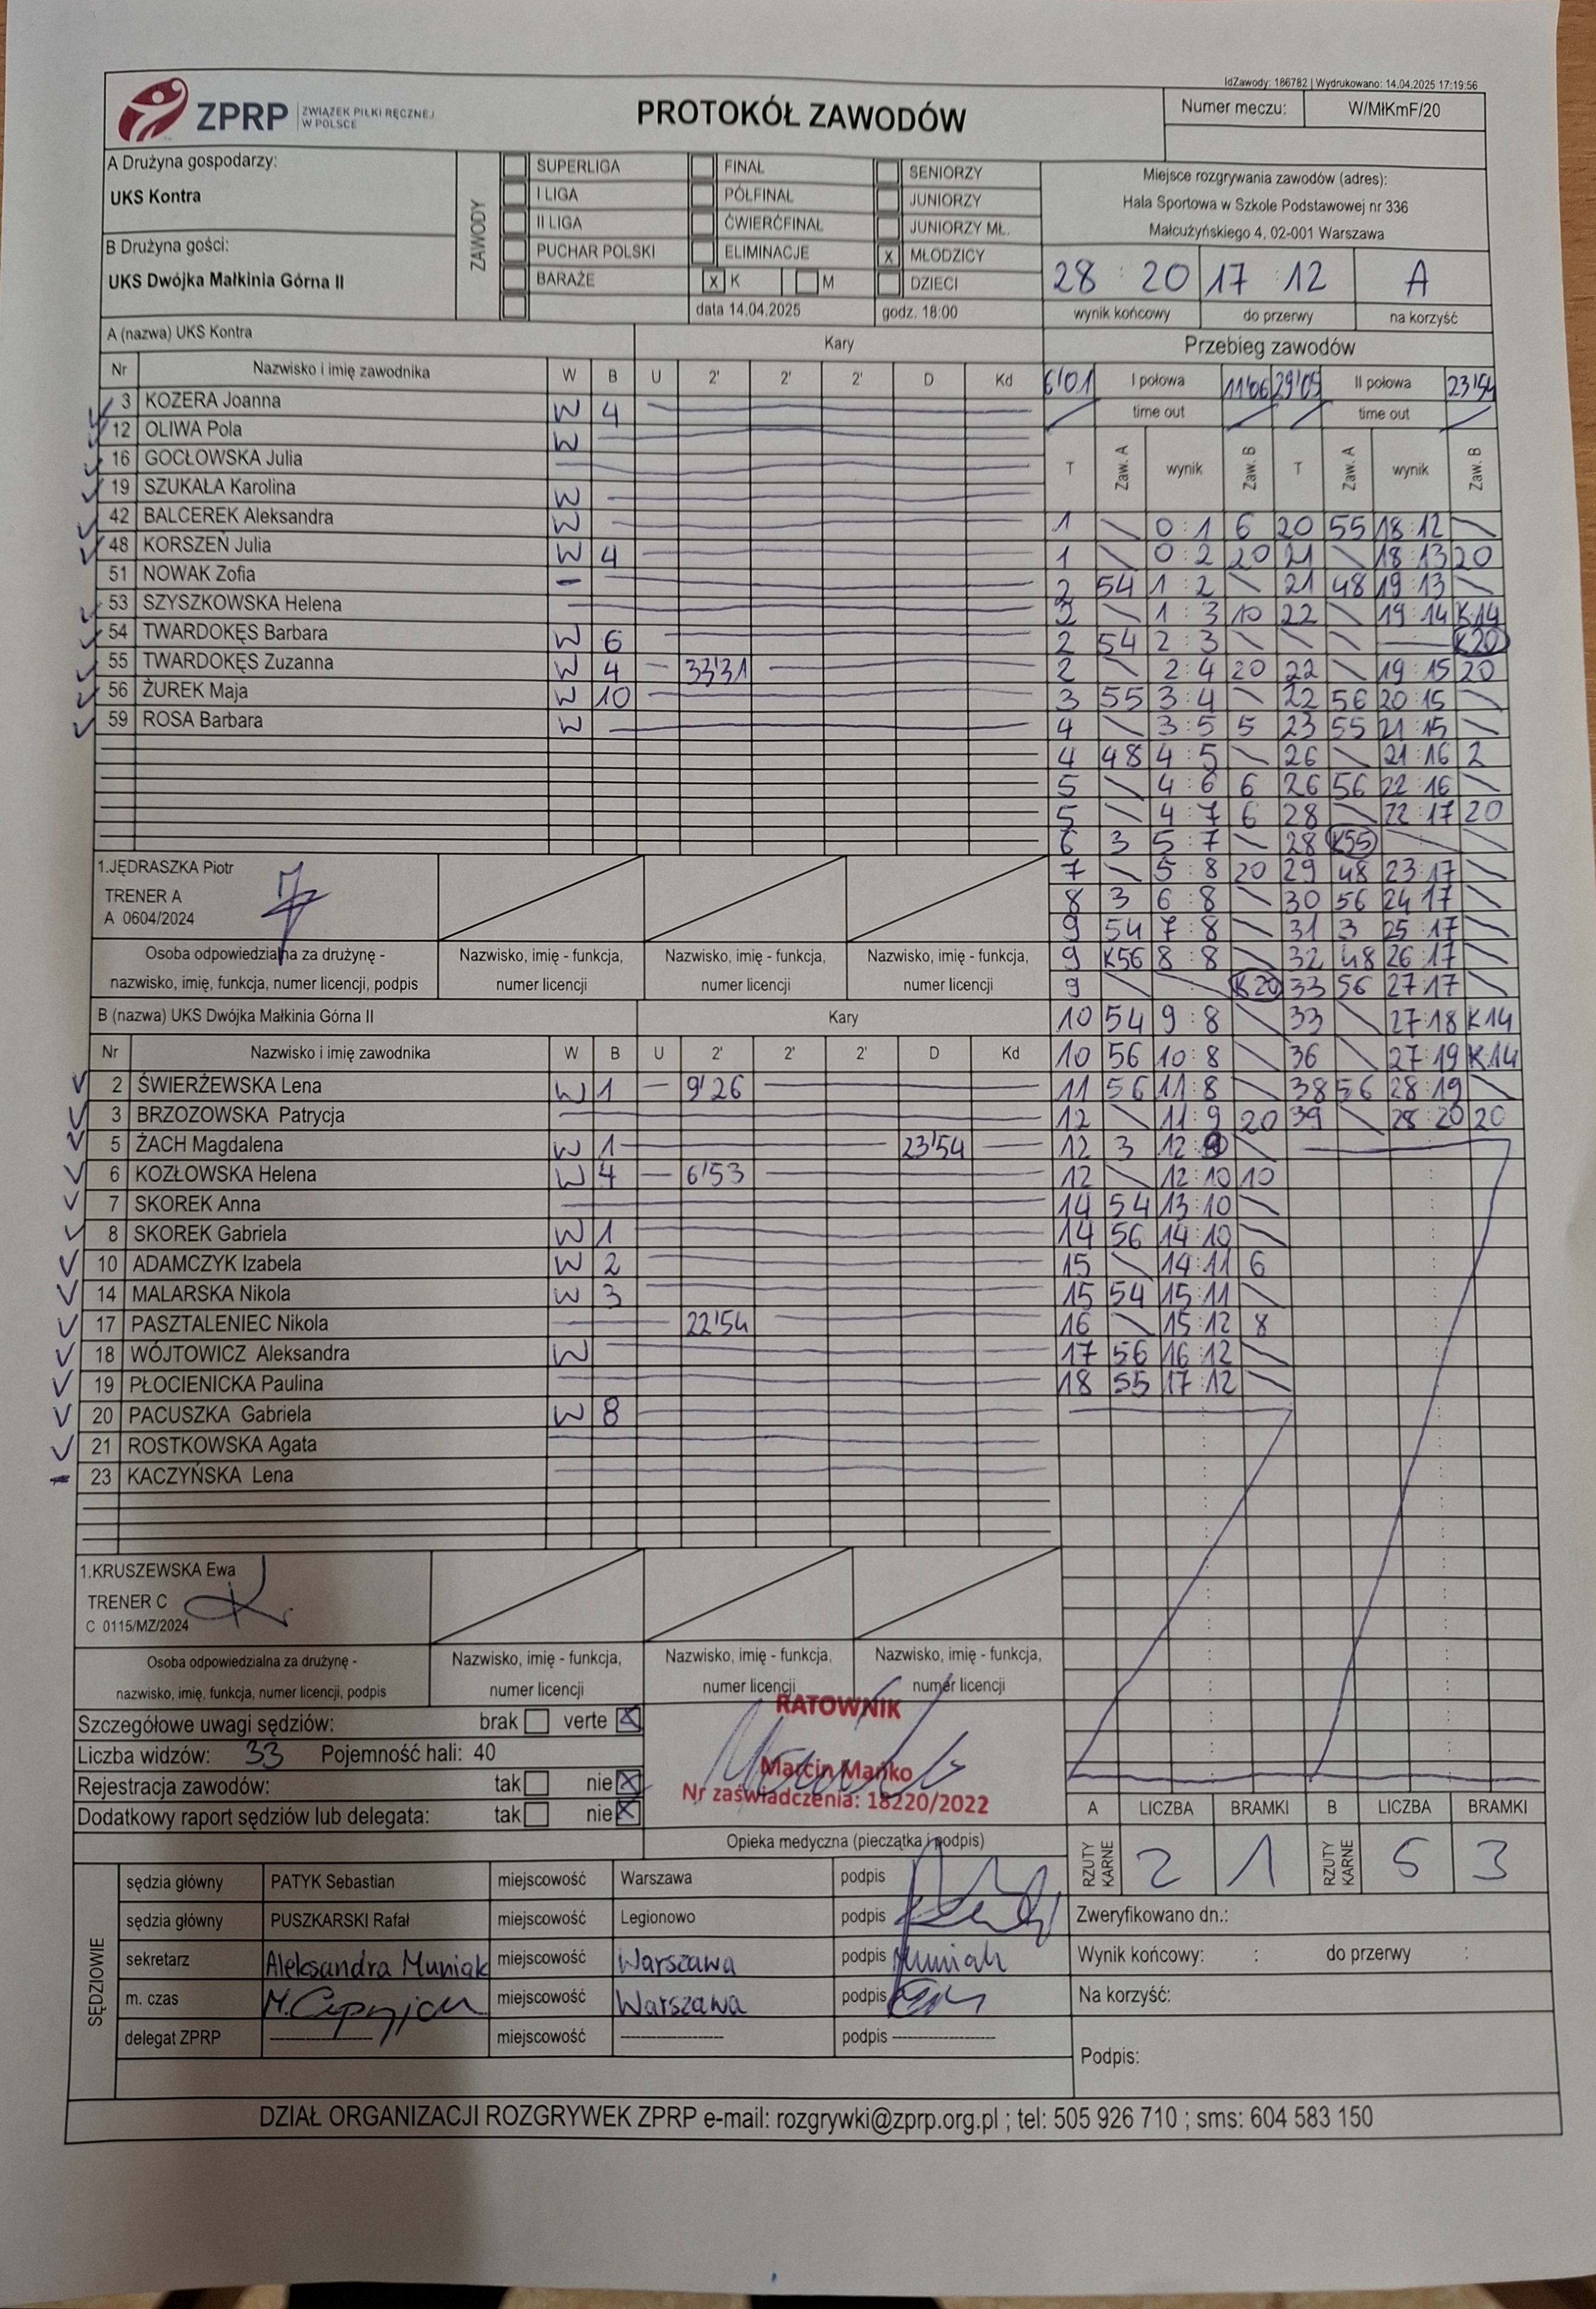 IdZawody: 186782 | Wydrukowano: 14.04.2025 17:19:56
ZPRP ZWIĄZEK PIŁKI RĘCZNEJ W POLSCE
PROTOKÓŁ ZAWODÓW
Numer meczu: W/MłKmF/20
A Drużyna gospodarzy:
UKS Kontra
B Drużyna gości:
UKS Dwójka Małkinia Górna II
ZAWODY
SUPERLIGA FINAŁ SENIORZY
I LIGA PÓŁFINAŁ JUNIORZY
II LIGA ĆWIERĆFINAŁ JUNIORZY MŁ.
PUCHAR POLSKI ELIMINACJE x MŁODZICY
BARAŻE x K M DZIECI
data 14.04.2025 godz. 18:00
Miejsce rozgrywania zawodów (adres):
Hala Sportowa w Szkole Podstawowej nr 336
Małcużyńskiego 4, 02-001 Warszawa
28 : 20 17 : 12 A
wynik końcowy do przerwy na korzyść
A (nazwa) UKS Kontra Kary
Nr Nazwisko i imię zawodnika W B U 2' 2' 2' D Kd
3 KOZERA Joanna W 4
12 OLIWA Pola W
16 GOCŁOWSKA Julia
19 SZUKAŁA Karolina W
42 BALCEREK Aleksandra W
48 KORSZEŃ Julia W 4
51 NOWAK Zofia -
53 SZYSZKOWSKA Helena
54 TWARDOKĘS Barbara W 6
55 TWARDOKĘS Zuzanna W 4 33'31
56 ŻUREK Maja W 10
59 ROSA Barbara W
1.JĘDRASZKA Piotr
TRENER A
A 0604/2024
Osoba odpowiedzialna za drużynę - nazwisko, imię, funkcja, numer licencji, podpis
Nazwisko, imię - funkcja, numer licencji
Nazwisko, imię - funkcja, numer licencji
Nazwisko, imię - funkcja, numer licencji
B (nazwa) UKS Dwójka Małkinia Górna II Kary
Nr Nazwisko i imię zawodnika W B U 2' 2' 2' D Kd
2 ŚWIERŻEWSKA Lena W 1 9'26
3 BRZOZOWSKA Patrycja
5 ŻACH Magdalena W 1 23'54
6 KOZŁOWSKA Helena W 4 6'53
7 SKOREK Anna
8 SKOREK Gabriela W 1
10 ADAMCZYK Izabela W 2
14 MALARSKA Nikola W 3
17 PASZTALENIEC Nikola 22'54
18 WÓJTOWICZ Aleksandra W
19 PŁOCIENICKA Paulina
20 PACUSZKA Gabriela W 8
21 ROSTKOWSKA Agata
23 KACZYŃSKA Lena
1.KRUSZEWSKA Ewa
TRENER C
C 0115/MZ/2024
Osoba odpowiedzialna za drużynę - nazwisko, imię, funkcja, numer licencji, podpis
Nazwisko, imię - funkcja, numer licencji
Nazwisko, imię - funkcja, numer licencji
Nazwisko, imię - funkcja, numer licencji
Przebieg zawodów
6'01 I połowa 11'06 29'05 II połowa 23'54
time out time out
T Zaw. A wynik Zaw. B T Zaw. A wynik Zaw. B
1 0:1 6 20 55 18:12
1 0:2 20 21 18:13 20
2 54 1:2 21 48 19:13
2 1:3 10 22 19:14 K14
2 54 2:3 K20
2 2:4 20 22 19:15 20
3 55 3:4 22 56 20:15
4 3:5 5 23 55 21:15
4 48 4:5 26 21:16 2
5 4:6 6 26 56 22:16
5 4:7 6 28 22:17 20
6 3 5:7 28 K55
7 5:8 20 29 48 23:17
8 3 6:8 30 56 24:17
9 54 7:8 31 3 25:17
9 K56 8:8 32 48 26:17
9 K20 33 56 27:17
10 54 9:8 33 27:18 K14
10 56 10:8 36 27:19 K14
11 56 11:8 38 56 28:19
12 11:9 20 39 28:20 20
12 3 12:9
12 12:10 10
14 54 13:10
14 56 14:10
15 14:11 6
15 54 15:11
16 15:12 8
17 56 16:12
18 55 17:12
Szczegółowe uwagi sędziów: brak verte x
Liczba widzów: 33 Pojemność hali: 40
Rejestracja zawodów: tak nie x
Dodatkowy raport sędziów lub delegata: tak nie x
RATOWNIK
Marcin Mańko
Nr zaświadczenia: 18220/2022
Opieka medyczna (pieczątka i podpis)
A LICZBA BRAMKI B LICZBA BRAMKI
RZUTY KARNE 2 1 RZUTY KARNE 5 3
SĘDZIOWIE
sędzia główny PATYK Sebastian miejscowość Warszawa podpis
sędzia główny PUSZKARSKI Rafał miejscowość Legionowo podpis
sekretarz Aleksandra Muniak miejscowość Warszawa podpis Muniak
m. czas miejscowość Warszawa podpis
delegat ZPRP miejscowość podpis
Zweryfikowano dn.:
Wynik końcowy: : do przerwy :
Na korzyść:
Podpis:
DZIAŁ ORGANIZACJI ROZGRYWEK ZPRP e-mail: rozgrywki@zprp.org.pl ; tel: 505 926 710 ; sms: 604 583 150